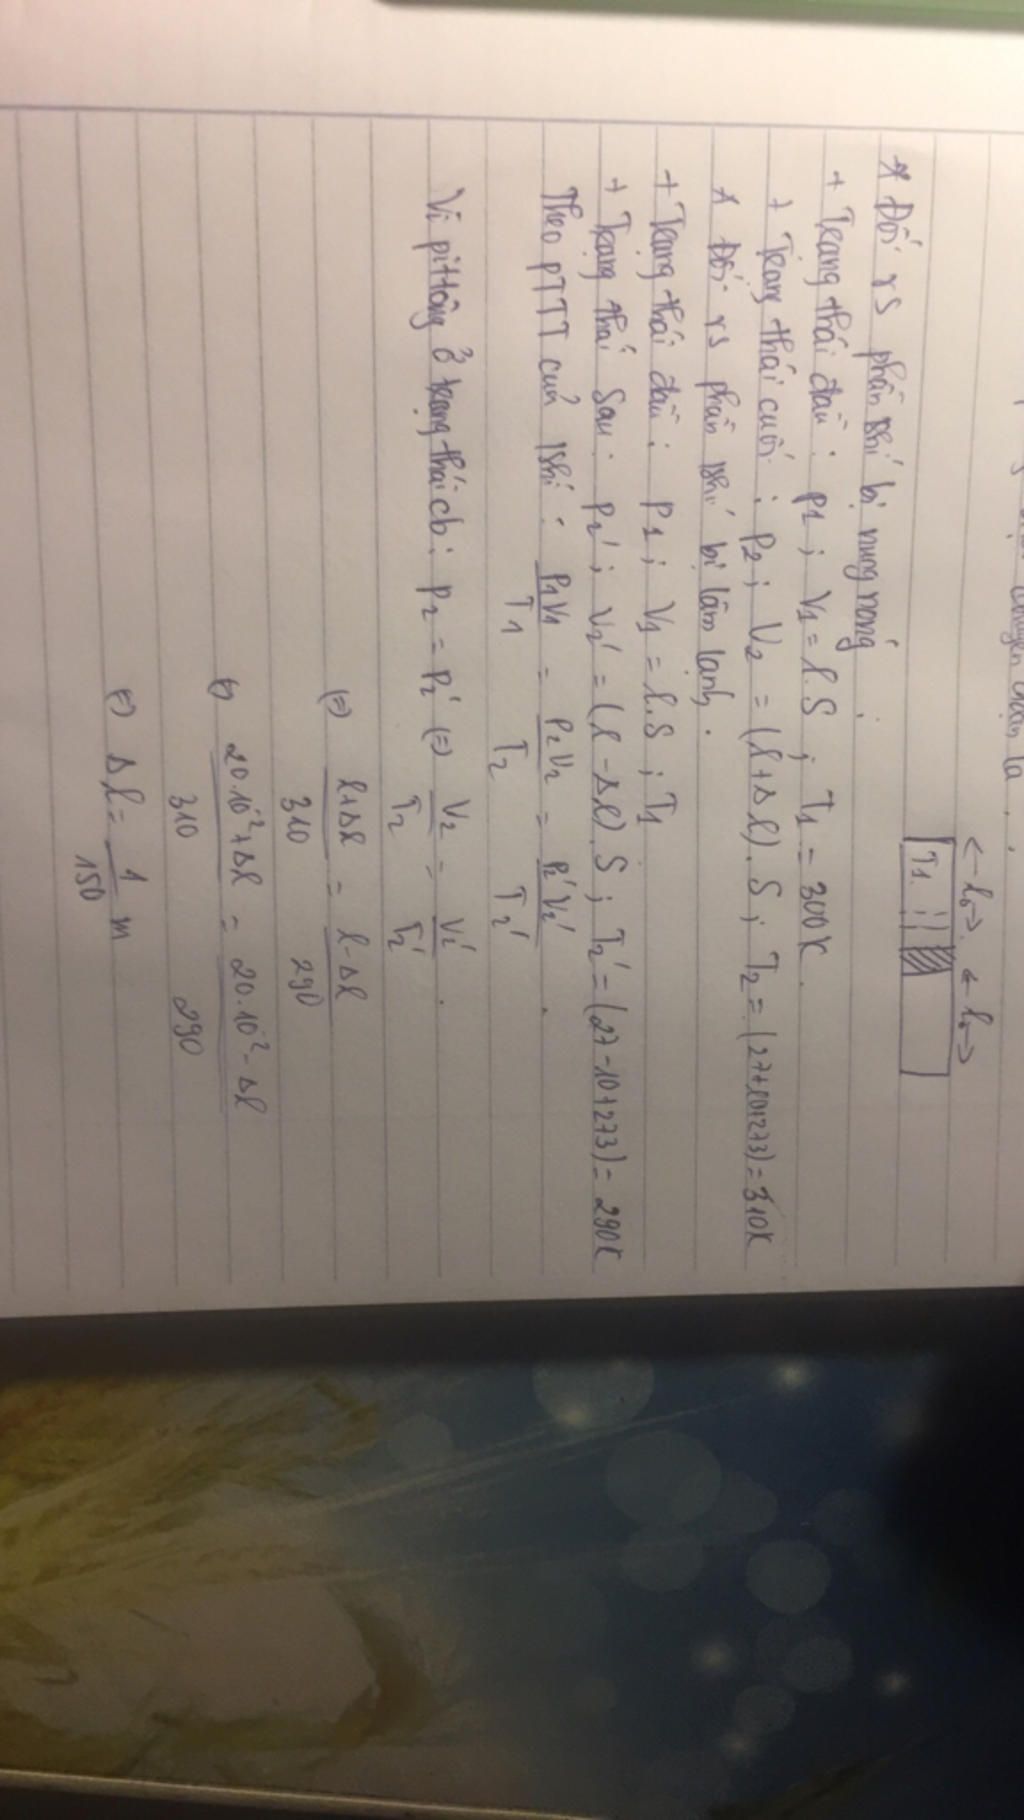 ← l₀ → ← l₀ →
T1
* Đối vs phần khí bị nung nóng
+ Trạng thái đầu : p1 ; V1 = l.S ; T1 = 300K.
+ Trạng thái cuối : P2 ; V2 = (l+Δl).S ; T2 = (27+10+273) = 310K
* Đối vs phần khí bị làm lạnh.
+ Trạng thái đầu : P1 ; V1 = l.S ; T1
+ Trạng thái sau : P2' ; V2' = (l - Δl) S ; T2' = (27-10+273) = 290K
Theo PTTT của khí : P1V1/T1 = P2V2/T2 = P2'V2'/T2' .
Vì pittông ở trạng thái cb : P2 = P2' (=) V2/T2 = V2'/T2' .
(=) l+Δl/310 = l-Δl/290
(=) 20.10⁻²+Δl/310 = 20.10⁻²-Δl/290
(=) Δl = 1/150 m